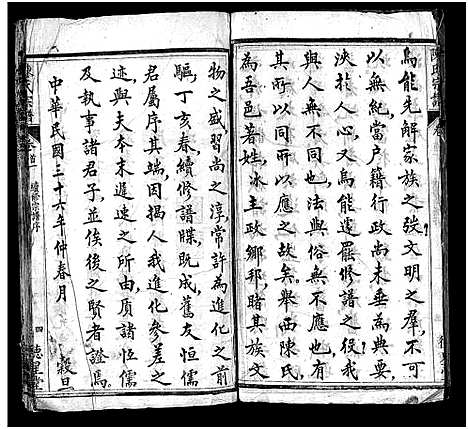 陳氏宗譜
烏能先解家族之發文明之群不可
以無紀當户籍行政尚未垂為典要
浹於人心又烏能遽罷修譜之役我
與人無不同也法與俗無不應也有
其所以同所以應之故矣舉西陳氏
為吾邑著姓冰主政鄉邦睹其族文
物之盛習尚之淳常許為進化之前
驅丁亥春續修譜牒既成舊友恒儒
君屬序其端因撰我進化參差之
迹與夫本末遲速之所由質諸恒儒
及執事諸君子並俟後之賢者證焉
中華民國三十六年仲春月
穀旦
陳氏宗譜
卷首
續修宗譜序
四
德星堂